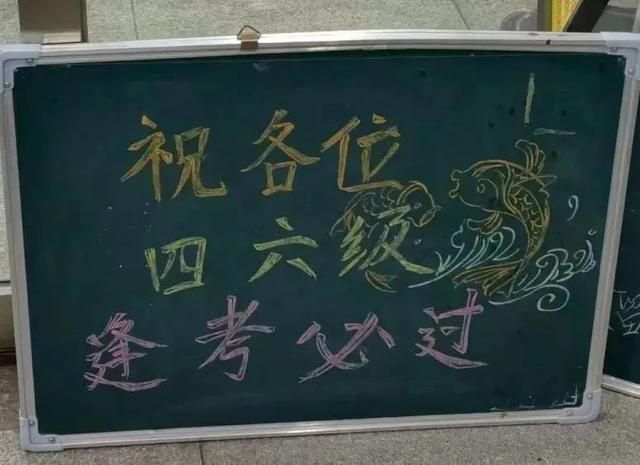 祝各位
四六级
逢考必过